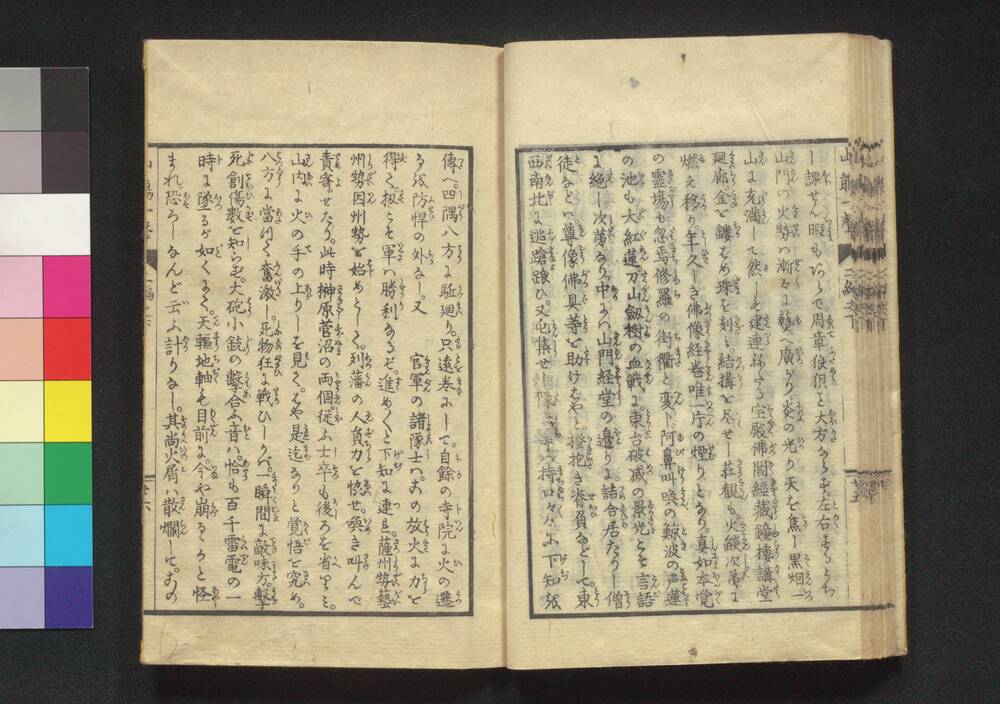 し課せん暇もあらで。周章狼狽と大方ならず。左右するうち
山門の火勢ハ漸々に蔓り廣がり炎の光り天を焦し黒烟一
山に充満して然しも建連ねたる宝殿佛閣經藏鐘樓講堂
廻廊金を鏤ばめ珠を刻ミ結構を尽せし荘観も火燄次第に
燃え移り年久しき佛像経巻唯一片の煙りとなり。真如本覚
の霊塲も忽焉修羅の街衢と変し。阿鼻叫喚の鯨波の声蓮
の池も大紅蓮刀山劔樹の血戦に東台破滅の景光とこそ言語
に絶し次第なり。中にハ山門経堂の邉りに詰合居たりし僧
徒などハ尊像佛具等を助けむやと撥抱き脊負などして。東
西南北に逃蹌踉ひ。又屯集せし隊士ハ持口々々に下知を
傳へ。四隅八方に駈廻り。只遠巻にして自餘の寺院に火の遷
るを防悍の外なし。又　官軍の諸隊士ハ。おの放火に力を
得て。扨こそ軍ハ勝利なるぞ。進めや〳〵と下知に連且。薩州勢藝
州勢因州勢を始めとして。列藩の人員力を愡せ。喚き叫んで
責寄せたり。此時榊原菅沼の両個。従ふ士卒も後ろを省ミ。
山内に火の手の上りしを見て。もはや是迄なりと覚悟を究め。
八方に當つて奮激し。死物狂に戦ひしかバ。一瞬間に敵味方。撃
死創傷数を知らず。大砲小銃の撃合ふ音ハ。恰も百千雷電の一
時に墜るが如くにて。天軀地軸も目前に。今や崩るゝかと怪
まれ恐ろしなんど云ふ計りなし。其尚火屑ハ散爛して。おの